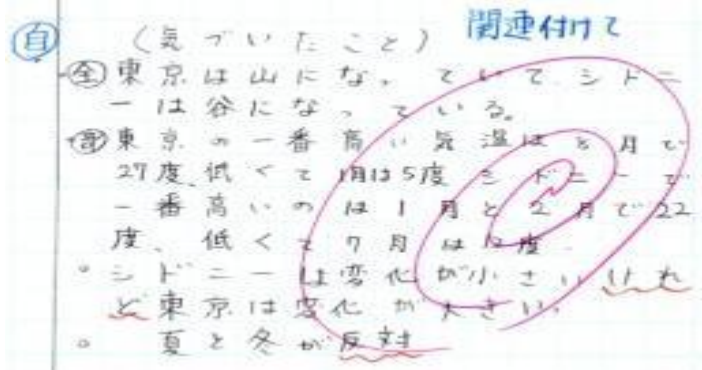 関連付けて
自 (気づいたこと)
全 東京は山になっていて、シドニ
ーは谷になっている。
部 東京の一番高い気温は8月で
27度、低くて1月は5度 シドニーで
一番高いのは1月と2月で22
度、低くて7月は12度。
。シドニーは変化が小さいけれ
ど東京は変化が大きい。
。夏と冬が反対